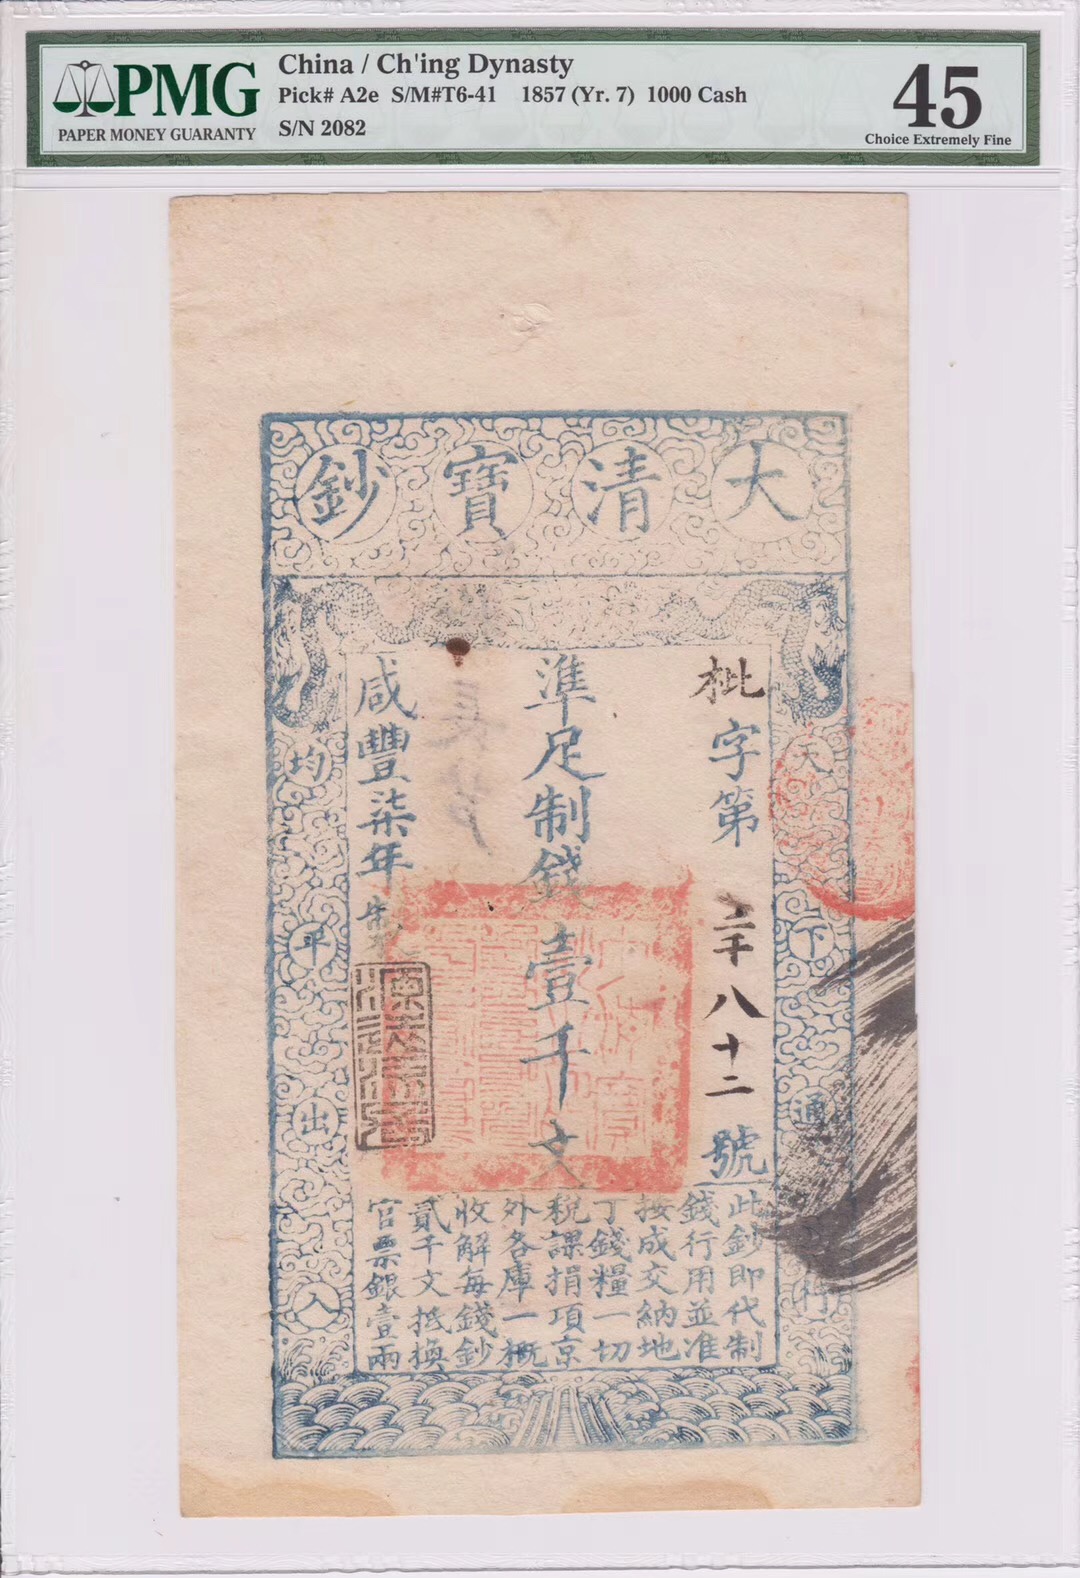 PMG
PAPER MONEY GUARANTY
China / Ch'ing Dynasty
Pick# A2e S/M#T6-41 1857 (Yr. 7) 1000 Cash
S/N 2082
45
Choice Extremely Fine
大清寶鈔
天下通行
均平出入
枇字第二千八十二號
準足制錢壹千文
咸豐柒年製
此鈔即代制
錢行用並准
按成交納地
丁錢糧一切
稅課捐項京
外各庫一概
收解每錢鈔
貳千文抵換
官票銀壹兩